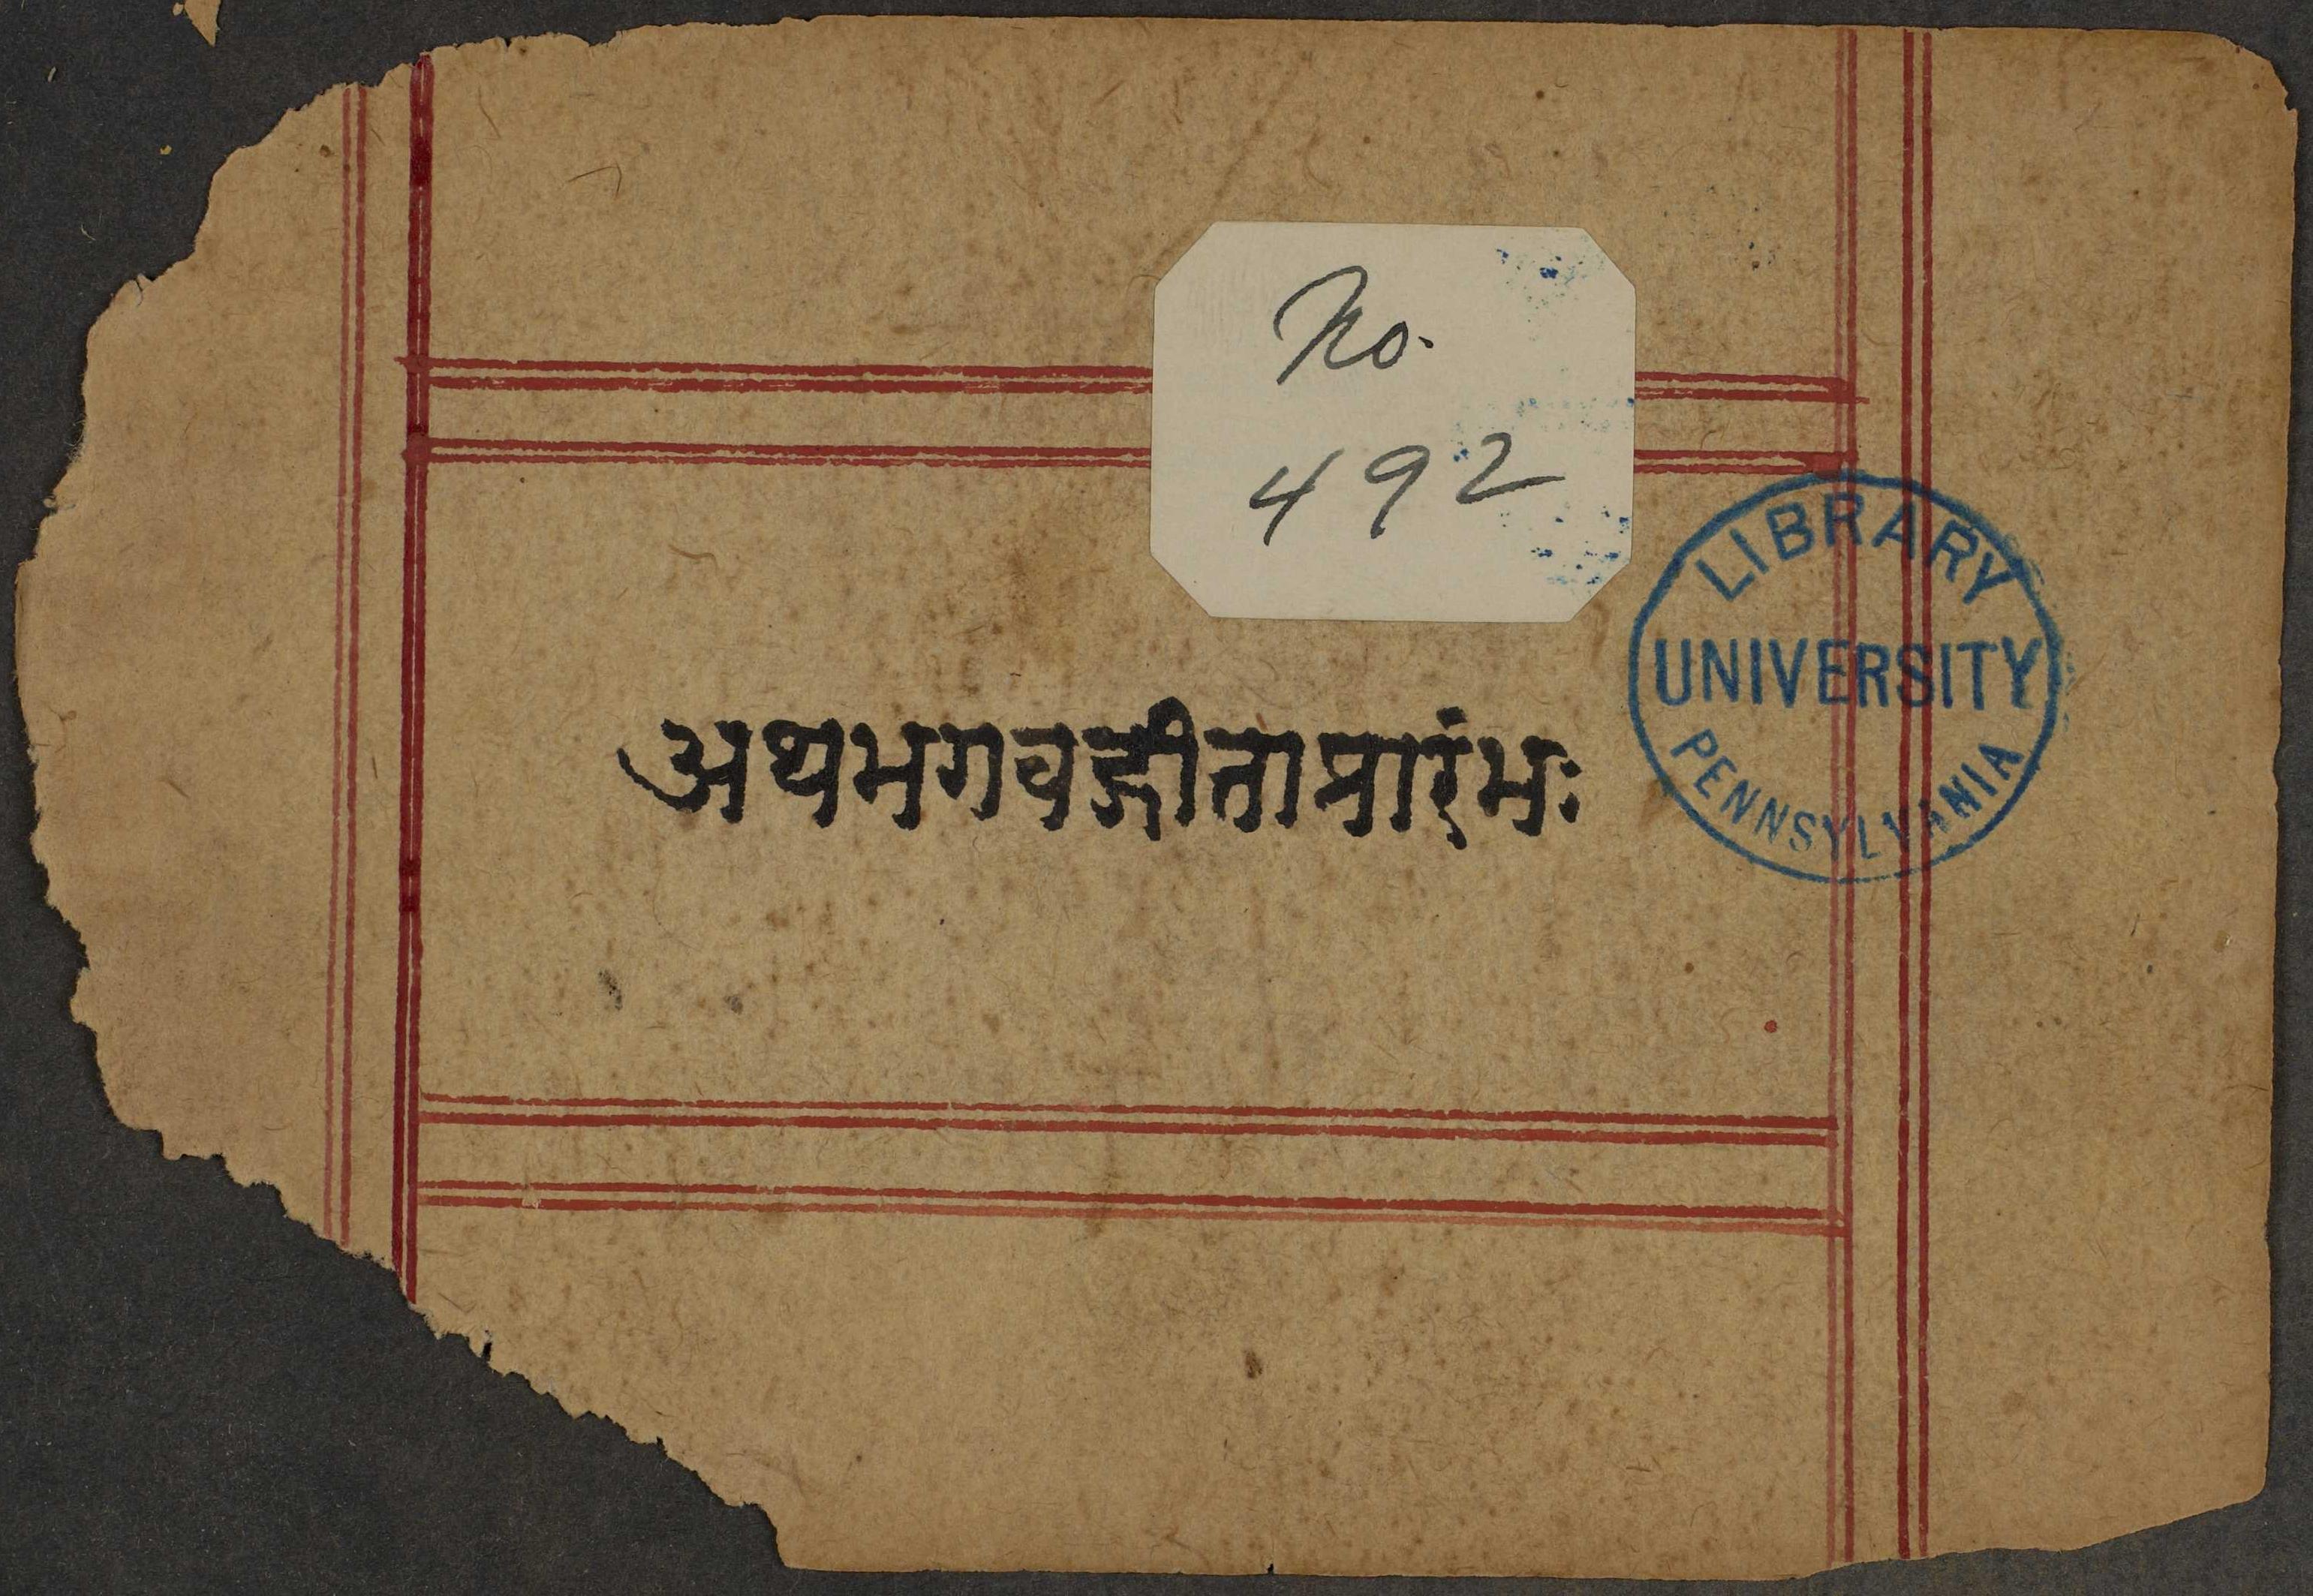 No.
492
LIBRARY
UNIVERSITY
PENNSYLVANIA
अथभगवद्गीताप्रारंभः